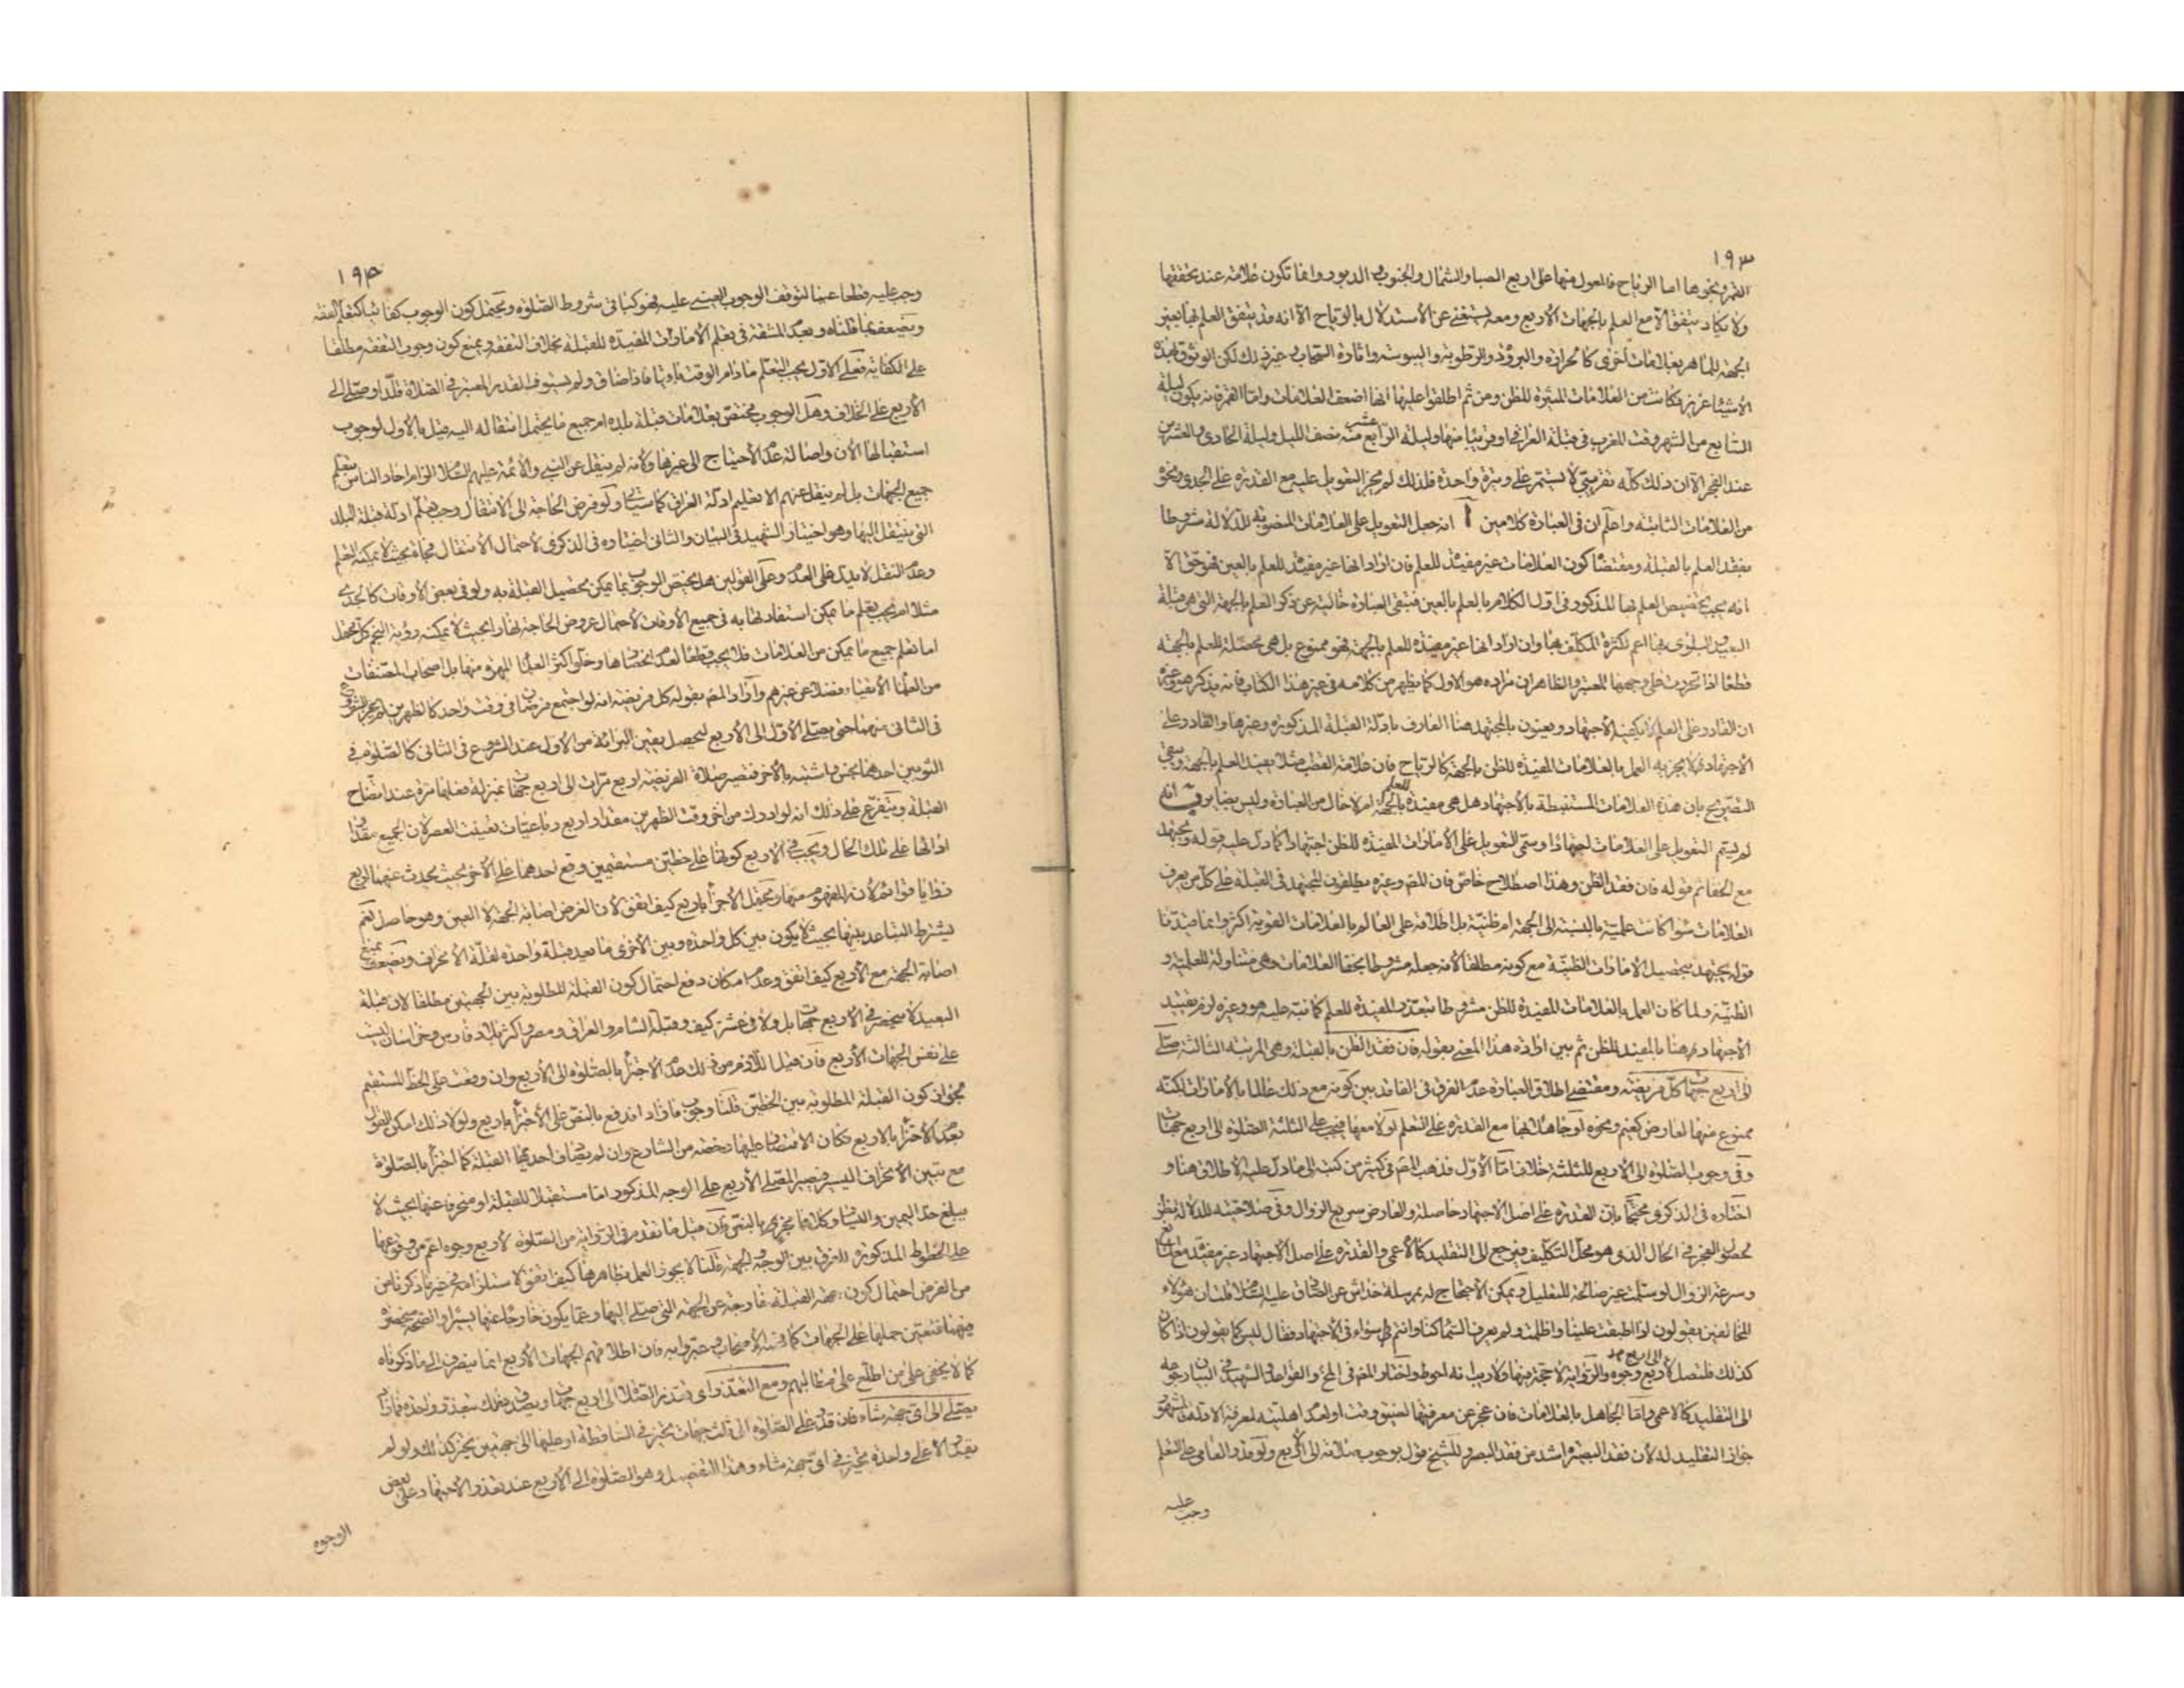 ١٩٣
القمر ونحوها اما الرياح فالمعول منها على اربع الصبا والشمال والجنوب والدبور وانما تكون علامة عند تحققها
ولا يكاد يتفق الا مع العلم بالجهات الأربع ومعه يستغنى عن الأستدلال بالرياح الا انه قد يتفق العلم بها بغير
الجهة للماهر بعلامات اخرى كالحرارة والبرودة والرطوبة واليبوسة واثارة السحاب وغير ذلك لكن الوثوق بهذه
الأشياء عزيز فكانت من العلامات المثيرة للظن ومن ثم اطلقوا عليها انها اضعف العلامات واما القمر فانه يكون ليلة
السابع من الشهر وقت المغرب في قبلة العراقي او قريبا منها وليلة الرابع عشر منه نصف الليل وليلة الحادي والعشرين
عند الفجر الا ان ذلك كله تقريبي لا يستمر على وتيرة واحدة فلذلك لم يجز التعويل عليه مع القدرة على الجدي ونحوه
من العلامات الثابتة واعلم ان في العبارة كلامين آ انه جعل التعويل على العلامات المنصوبة للدلالة مشروطا
بفقد العلم بالقبلة ومقتضاه كون العلامات غير مفيدة للعلم فان اراد انها غير مفيدة للعلم بالعين فهو حق الا
انه يجب تخصيص العلم بها المذكور في اول الكلام بالعلم بالعين فتبقى العبارة خالية عن ذكر العلم بالجهة التي هي قبلة
البعيد والبلوى بها اعم لكثرة المكلف بها وان اراد انها غير مفيدة للعلم بالجهة فهو ممنوع بل هي محصلة للعلم بالجهة
قطعا اذا تحررت على وجهها المعتبر والظاهر ان مراده هو الاول كما يظهر من كلامه في غير هذا الكتاب فانه يذكر هو وغيره
ان القادر على العلم لا يكفيه الاجتهاد ويعنون بالمجتهد هنا العارف بادلة القبلة المذكورة وغيرها والقادر على
الأجتهاد لا يجزيه العمل بالعلامات المفيدة للظن بالجهة كالرياح فان علامة القطب مثلا يفيد العلم بالجهة وبقي
التصريح بان هذه العلامات المستنبطة بالأجتهاد هل هي مفيدة للعلم بالجهة ام لا خال من العبارة وليس بضاير ب انه
لم يسم التعويل على العلامات اجتهادا وسمى التعويل على الأمارات المفيدة للظن اجتهادا كما دل عليه قوله ويجتهد
مع الخفاء ثم قوله فان فقد الظن وهذا اصطلاح خاص فان المصـ وغيره يطلقون المجتهد في القبلة على كل من يعرف
العلامات سواء كانت علمية بالنسبة الى الجهة ام ظنية بل اطلاقه على العالم بالعلامات القوية اكثر وانما قيدنا
قوله يجتهد بتحصيل الامارات الظنية مع كونه مطلقا لأنه جعله مشروطا بخفاء العلامات وهي متناولة للعلمية و
الظنية ولما كان العمل بالعلامات المفيدة للظن مشروطا بتعذر المفيدة للعلم كما نبه عليه هو وغيره لزم تقييد
الأجتهاد هنا بالمفيد للظن ثم بين ارادة هذا المعنى بقوله فان فقد الظن بالقبلة وهي المرتبة الثالثة صلى
الى اربع جهات كل فريضة ومقتضى اطلاق العبارة عدم الفرق في الفاقد بين كونه مع ذلك عالما بالأمارات لكنه
ممنوع منها لعارض كغيم ونحوه او جاهلا بها مع القدرة على التعلم او لا معها فيجب على الثلثة الصلوة الى اربع جهات
وفي وجوب الصلوة الى الأربع للثلثة خلاف اما الأول فذهب المصـ في كثير من كتبه الى ما دل عليه الأطلاق هنا و
اختاره في الذكرى محتجا بان القدرة على اصل الاجتهاد حاصلة والعارض سريع الزوال وفي صلاحيته للدلالة نظر
لحصول العجز في الحال الذي هو محل التكليف فيرجع الى التقليد كالأعمى والقدرة على اصل الأجتهاد غير مفيد مع المانع
وسرعة الزوال لو سلمت غير صالحة للتعليل ويمكن الأحتجاج له بمرسلة خداش عن الصادق عليه السلام قلت ان هؤلاء
المخالفين يقولون اذا اطبقت علينا واظلمت ولم يعرف السماء كنا وانتم سواء في الأجتهاد فقال ليس كما يقولون اذا كان
كذلك فليصل الى اربع وجوه والرواية لا حجة فيها ولا ريب انه احوط واختار المصـ في المخ والقواعد والشهيد في البيان رجوعه
الى التقليد كالاعمى واما الجاهل بالعلامات فان عجز عن معرفتها لضيق وقت او لعدم اهليته لمعرفة الادلة فالمشهور
جواز التقليد له لأن فقد البصيرة اشد من فقد البصر وللشيخ قول بوجوب صلاته الى الأربع ولو قدر العامي على التعلم
وجب عليه
١٩٤
وجب عليه قطعا عينا لتوقف الوجوب العيني عليه فهو كباقي شروط الصلوة ويحتمل كون الوجوب كفائيا كتعلم الفقه
ويضعف بما قلناه وبعدم المشقة في تعلم الأمارات المفيدة للقبلة بخلاف التفقه ويمنع كون وجوب التفقه مطلقا
على الكفاية فعلى الاول يجب التعلم ما دام الوقت باقيا فاذا ضاق ولم يستوف القدر المعتبر في الصلاة قلد او صلى الى
الأربع على الخلاف وهل الوجوب مختص بعلامات قبلة بلده ام جميع ما يحتمل انتقاله اليه قيل بالأول لوجوب
استقبالها الأن واصالة عدم الأحتياج الى غيرها وكأنه لم ينقل عن النبي والأئمة عليهم السلام الزام احاد الناس بتعلم
جميع الجهات بل لم ينقل عنهم الا تعليم ادلة العراق كما سيأتي ولو فرض الحاجة الى الأنتقال وجب تعلم ادلة قبلة البلد
التي ينتقل اليها وهو اختيار الشهيد في البيان والثاني اختياره في الذكرى لأحتمال الأنتقال فجأة بحيث لا يمكنه التعلم
وعدم النقل لا يدل على العدم وعلى القولين هل يختص الوجوب بما يمكن تحصيل القبلة به ولو في بعض الأوقات كالجدي
مثلا ام يجب تعلم ما يمكن استفادتها به في جميع الأوقات لأحتمال عروض الحاجة نهارا بحيث لا يمكنه رؤية النجم كل محتمل
اما تعلم جميع ما يمكن من العلامات فلا يجب قطعا لعدم انحصارها وخلو اكثر العلماء المهرة منها بل اصحاب المصنفات
من العلماء الأتقياء فضلا عن غيرهم واراد المصـ بقوله كل فريضة انه لو اجتمع فرضان في وقت واحد كالظهرين لم يجز الشروع
في الثاني منهما حتى يصلي الأول الى الأربع ليحصل يقين البراءة من الأول عند الشروع في الثاني كالصلوة في
الثوبين احدهما نجس واشتبه بالأخر فتصير صلاة الفريضة اربع مرات الى اربع جهات بمنزلة فعلها مرة عند اتضاح
القبلة ويتفرع على ذلك انه لو ادرك من اخر وقت الظهرين مقدار اربع رباعيات تعينت العصر لأن الجميع مقدار
ادائها على تلك الحال ويجب في الاربع كونها على خطين مستقيمين وقع احدهما على الأخر بحيث يحدث عنهما اربع
زوايا قوائم لأنه المفهوم منها ويحتمل الأجزاء باربع كيف اتفق لأن الغرض اصابة الجهة لا العين وهو حاصل نعم
يشترط التباعد بينها بحيث لا يكون بين كل واحدة وبين الأخرى ما يعد قبلة واحدة لقلة الأنحراف ويضعف بمنع
اصابة الجهة مع الأربع كيف اتفق وعدم امكان دفع احتمال كون القبلة المطلوبة بين الجهتين مطلقا لان قبلة
البعيد لا تنحصر في الاربع جهات بل ولا في عشر كيف وقبلة الشام والعراق ومصر واكثر بلاد فارس وخراسان ليست
على نفس الجهات الأربع فان قيل اللازم من ذلك عدم الاجتزاء بالصلوة الى الأربع وان وقعت على الخط المستقيم
لجواز كون القبلة المطلوبة بين الخطين قلنا وجوب ما زاد اندفع بالنص على الأجتزاء باربع ولولا ذلك امكن القول
بعدم الأجتزاء بالاربع فكان الاقتصار عليها رخصة من الشارع وان لم يضاف احديها القبلة كما اجتزأ بالصلوة
مع تبين الأنحراف اليسير فيصير المصلي الأربع على الوجه المذكور اما مستقبلا للقبلة او منحرفا عنها بحيث لا
يبلغ حد اليمين واليسار وكلاهما مجزئ بالنص فان قيل ما تقدم في الرواية من الصلوة لأربع وجوه اعم من وقوعها
على الخطوط المذكورة للفرق بين الوجه والجهة قلنا لا يجوز العمل بظاهرها كيف اتفق لاستلزامه ما ذكرناه من
من الفرض احتمال كون جهة القبلة خارجة عن الجهة التي صلى اليها وعما يكون خارجا عنها يسيرا والصحة منحصرة
فيهما فتعين حملها على الجهات كما فسره الأصحاب وعبروا به فان اطلاقهم الجهات الأربع انما ينصرف الى ما ذكرناه
كما لا يخفى على من اطلع على مقالتهم ومع التعذر اى تعذر الصلاة الى اربع جهات ويصدق ذلك بتعذر واحدة فما زاد
يصلي الى اى جهة شاء فان قدر على الصلوة الى ثلث جهات تخير في الساقطة او عليها الى جهتين يخير كذلك ولو لم
يقدر الا على واحدة تخير في اى جهة شاء وهذا التفصيل وهو الصلوة الى الأربع عند تعذر الأجتهاد على بعض
الوجوه